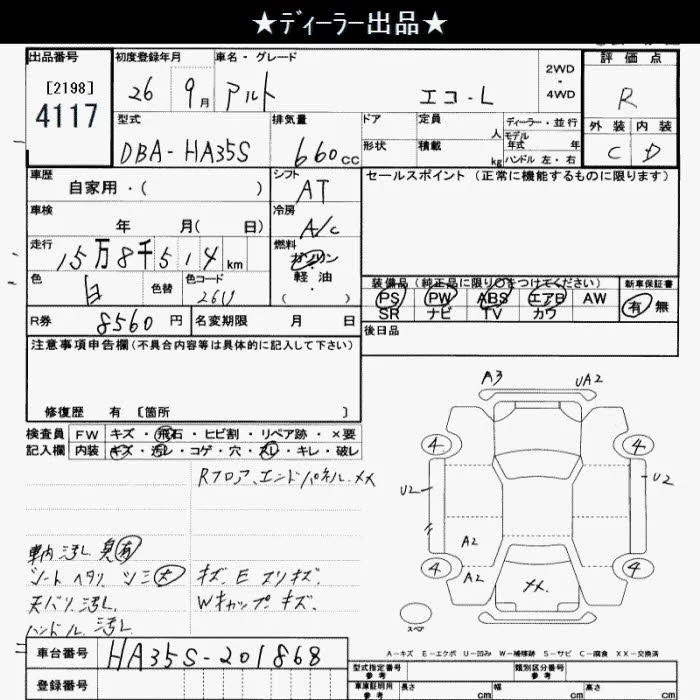 ★ディーラー出品★
出品番号 初度登録年月 車名・グレード
[2198] 4117
26 9月 アルト エコ-L
2WD・4WD
評価点
R
外装 内装
C D
型式 排気量 ドア 定員 人 ディーラー・並行
DBA-HA35S 660cc
形状 積載 kg モデル年式 年
ハンドル 左・右
車歴 シフト セールスポイント (正常に機能するものに限ります)
自家用・( ) AT
車検 冷房
年 月( 日) A/C
走行 燃料
15万8千514km ガソリン・軽油・( )
色 白 色替 色コード 26U
装備品(純正品に限り○をつけてください) 新車保証書
PS PW ABS エアB AW 有 無
SR ナビ TV カワ
R券 8560円 名変期限 月 日
後日品
注意事項申告欄(不具合内容等は具体的に記入して下さい)
修復歴 有 [箇所 ]
検査員記入欄 FW キズ・飛石・ヒビ割・リペア跡・×要
内装 キズ・汚レ・コゲ・穴・スレ・キレ・破レ
Rフロア、エンドパネル XX
車内汚レ 臭有
シートヘタリ シミ大 キズ E スリキズ
天バリ汚レ Wキャップ キズ
ハンドル 汚レ
A3 UA2
4 4
U2 U2
A2
4 4
A2
XX
スペア
A-キズ E-エクボ U-凹み W-補修跡 S-サビ C-腐食 XX-交換済
車台番号 HA35S-201868
登録番号
型式指定番号 参考 類別区分番号 参考
車庫証明用 参考 長さ cm 幅 cm 高さ cm